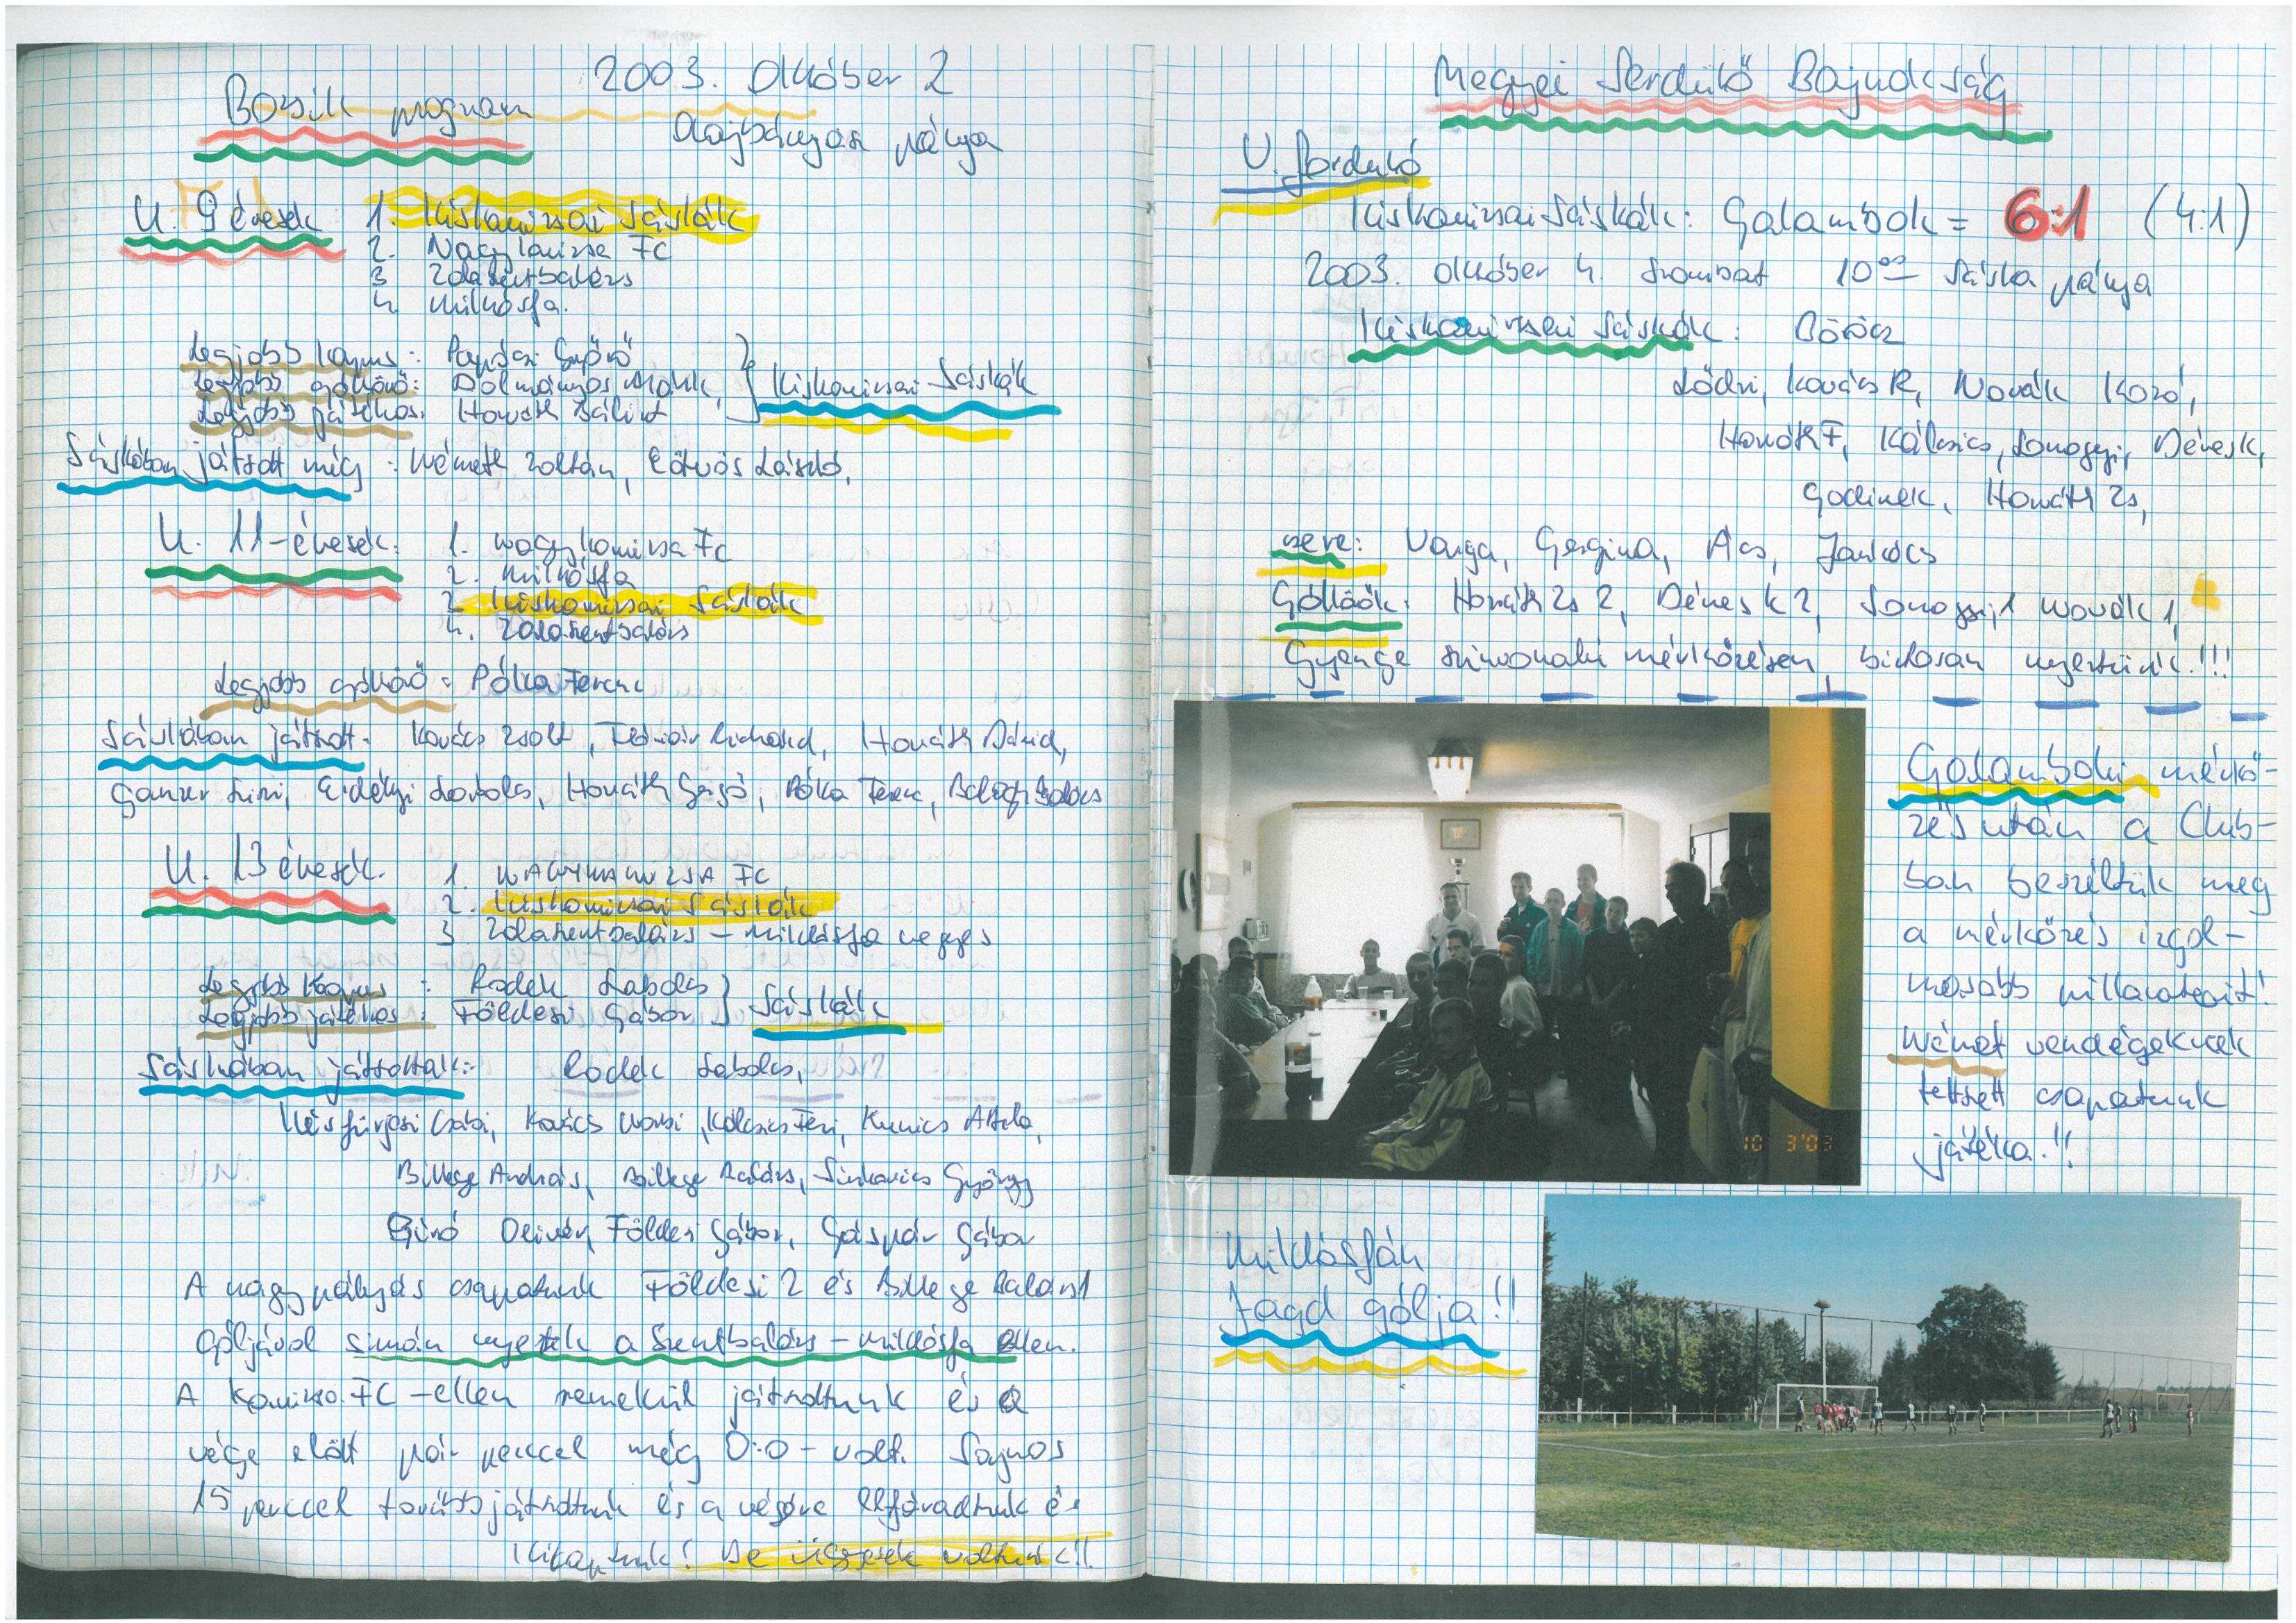 2003. Október 2
Bozsik program
Bajbányási pálya
U. 9 évesek 1. Kiskanizsai Sáskák
2. Nagykanizsa FC
3 Zalaszentbalázs
4. Miklósfa.
Legjobb kapus: Győző
Legjobb góllövő: Dolmányos Márk,
Legjobb játékos: Horváth Bálint
Kiskanizsai Sáskák
Sáskában játszott még: Németh Zoltán, Eötvös László,
U. 11-évesek: 1. Nagykanizsa FC
2. Miklósfa
3. Kiskanizsai Sáskák
4. Zalaszentbalázs
Legjobb góllövő: Póka Ferenc
Sáskában játszott: Kovács Zsolt, Richárd, Horváth Dávid,
Ganzer Szimi, Erdélyi Szabolcs, Horváth Gergő, Póka Ferenc, Balogh Balázs
U. 13 évesek. 1. NAGYKANIZSA FC
2. Kiskanizsai Sáskák
3. Zalaszentbalázs - Miklósfa vegyes
Legjobb kapus: Rodek Szabolcs
Legjobb játékos: Földesi Gábor
Sáskák
Sáskában játszottak: Rodek Szabolcs,
Csabi, Kovács Norbi, Kálcsics Feri, Kunics Attila,
Billege András, Billege Balázs, Sinkovics György
Bíró Olivér, Földesi Gábor, Gáspár Gábor
A nagypályás csapatunk Földesi 2 és Billege Balázs 1
góljával simán nyertek a Szentbalázs - Miklósfa ellen.
A Kanizsa FC - ellen remekül játszottunk és a
vége előtt pár perccel még 0:0 - volt. Sajnos
15 perccel tovább játszottunk és a végére elfáradtunk és
kikaptunk! De ügyesek voltunk!!
Megyei Serdülő Bajnokság
V. forduló
Kiskanizsai Sáskák: Galambok = 6:1 (4:1)
2003. Október 4. Szombat 10⁰⁰ Sáska pálya
Kiskanizsai Sáskák: Böröcz
Lődri, Kovács R, Novák Kozó,
Horváth F, Kálcsics, Somogyi, Dénes K,
Godinek, Horváth Zs,
csere: Varga, Gergina, Ács, Jankócs
Góllövők: Horváth Zs 2, Dénes K 2, Somogyi 1 Novák 1,
Gyenge színvonalú mérkőzésen, biztosan nyertünk!!!
Galamboki mérkő-
zés után a Club-
ban beszéltük meg
a mérkőzés izgal-
masabb pillanatait!
Német vendégeknek
tetszett csapatunk
játéka!!
10 3'03
Miklósfán
Jagd gólja!!